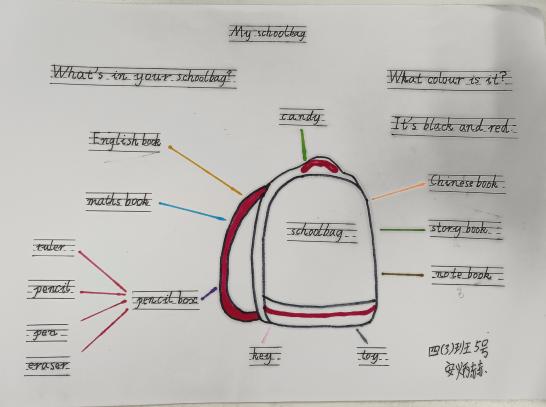 My schoolbag
What's in your schoolbag?
What colour is it?
candy
It's black and red.
English book
Chinese book
maths book
story book
schoolbag
ruler
note book
pencil
pencil box
pen
eraser
key
toy
四(3)班 5号